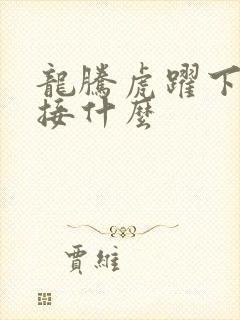 龍騰虎躍下
接什麼
賈維